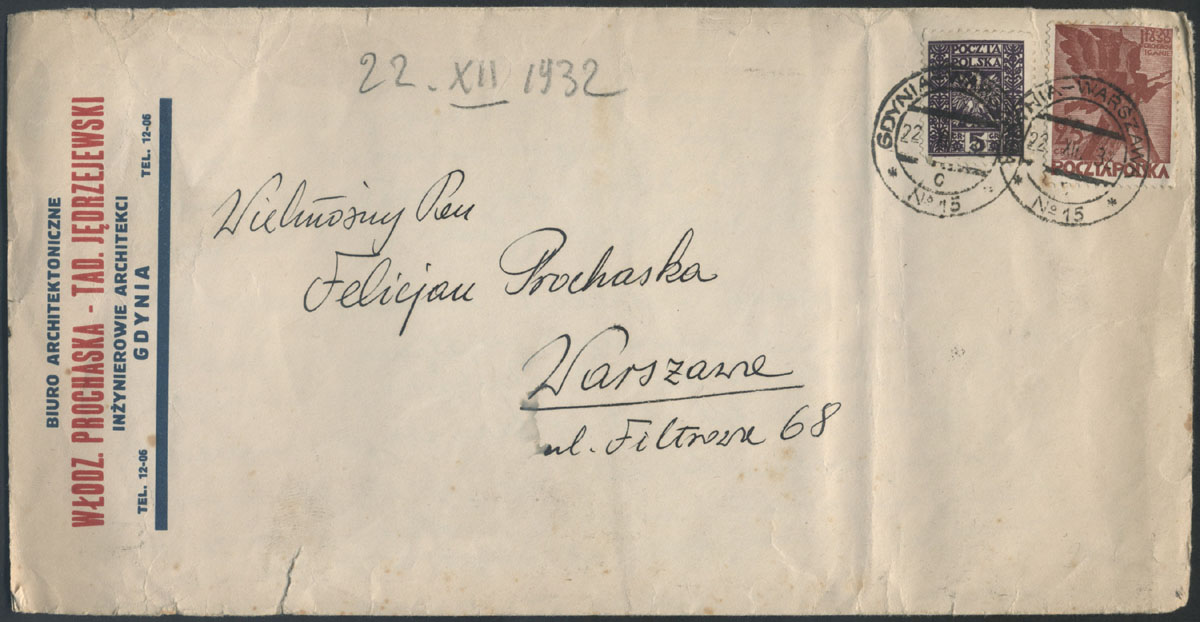 BIURO ARCHITEKTONICZNE
WŁODZ. PROCHASKA - TAD. JĘDRZEJEWSKI
INŻYNIEROWIE ARCHITEKCI
TEL. 12-06 GDYNIA TEL. 12-06
22. XII 1932
Wielmożny Pan
Felicjan Prochaska
Warszawa
ul. Filtrowa 68
POCZTA
POLSKA
5
GDYNIA
22
C
* No 15
1830 1930
25
POCZTA POLSKA
NIA-WARSZAWA
22. XII. 3
* No 15 *